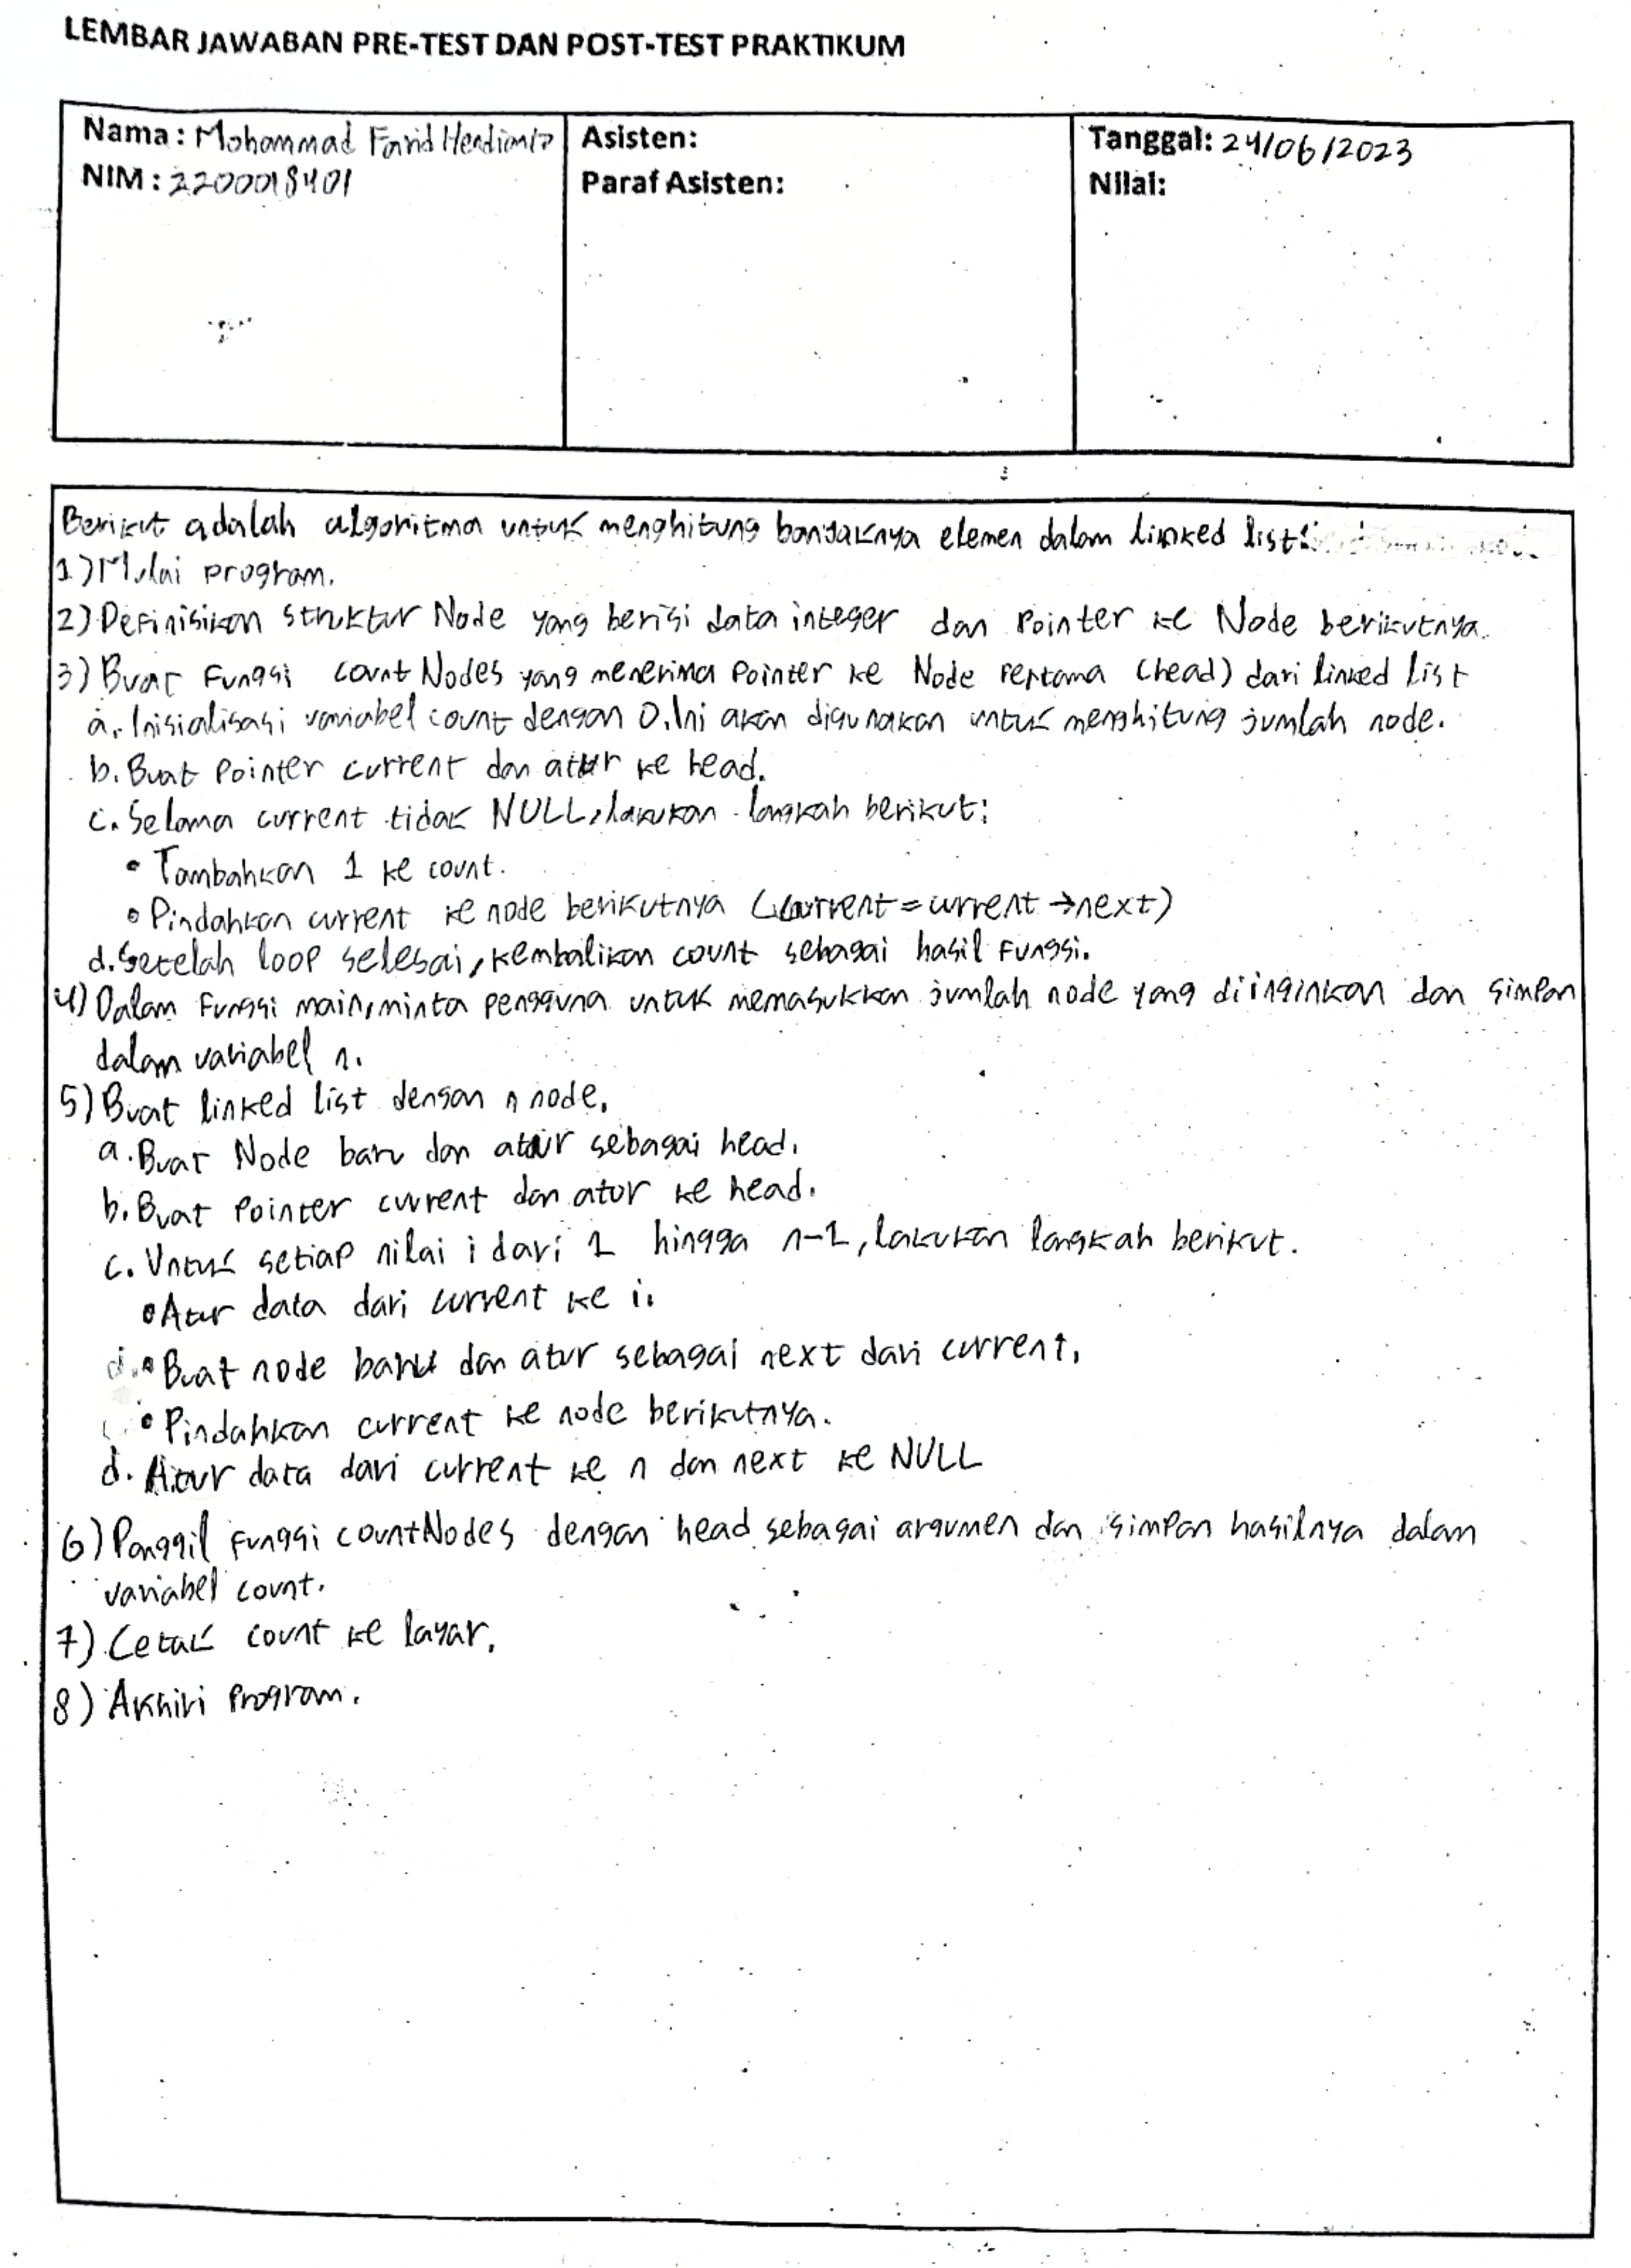 LEMBAR JAWABAN PRE-TEST DAN POST-TEST PRAKTIKUM
Nama : Mohammad Farid Hendianto
NIM : 2200018401
Asisten:
Paraf Asisten:
Tanggal: 24/06/2023
Nilai:
Berikut adalah algoritma untuk menghitung banyaknya elemen dalam linked list:
1) Mulai program.
2) Definisikan struktur Node yang berisi data integer dan Pointer ke Node berikutnya.
3) Buat Fungsi countNodes yang menerima Pointer ke Node Pertama (head) dari linked list
a. Inisialisasi variabel count dengan 0. Ini akan digunakan untuk menghitung jumlah node.
b. Buat Pointer current dan atur ke head.
c. Selama current tidak NULL, lakukan langkah berikut:
• Tambahkan 1 ke count.
• Pindahkan current ke node berikutnya (current = current →next)
d. Setelah loop selesai, kembalikan count sebagai hasil Fungsi.
4) Dalam Fungsi main, minta pengguna untuk memasukkan jumlah node yang diinginkan dan simpan
dalam variabel n.
5) Buat linked list dengan n node.
a. Buat Node baru dan atur sebagai head.
b. Buat Pointer current dan atur ke head.
c. Untuk setiap nilai i dari 1 hingga n-1, lakukan langkah berikut.
• Atur data dari current ke i.
• Buat node baru dan atur sebagai next dari current.
• Pindahkan current ke node berikutnya.
d. Atur data dari current ke n dan next ke NULL
6) Panggil Fungsi countNodes dengan head sebagai argumen dan simpan hasilnya dalam
variabel count.
7) Cetak count ke layar.
8) Akhiri Program.